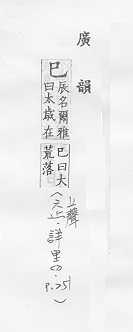 廣韻
巳
辰名爾雅
曰太歲在
巳曰大
荒落
(上聲
六止 詳里切
P.251)